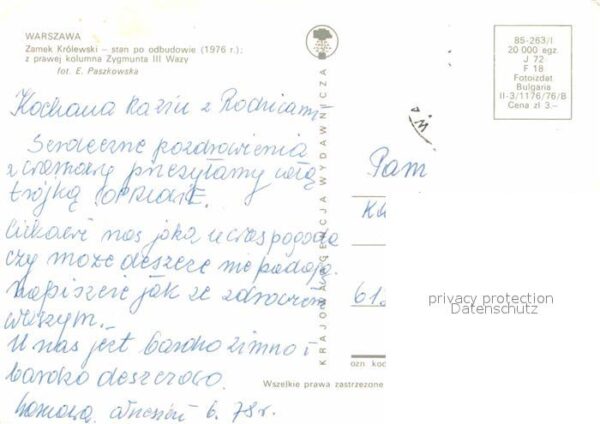 WARSZAWA
Zamek Królewski – stan po odbudowie (1976 r.);
z prawej kolumna Zygmunta III Wazy
fot. E. Paszkowska
KRAJOWA AGENCJA WYDAWNICZA
85-263/I
20 000 egz.
J 72
F 18
Fotoizdat
Bulgaria
II-3/1176/76/B
Cena zł 3.—
Kochana Kaziu z Rodnicami
Serdeczne pozdrowienia
z przesyłamy całą
trójką
Ciekawi nas jaka u was pogoda
czy może deszcze nie padają.
Napiszcie jak ze zdrowiem
waszym.
U nas jest bardzo zimno i
bardzo deszczowo.
6. 78r.
Pam
privacy protection
Datenschutz
ozn kod
Wszelkie prawa zastrzeżone